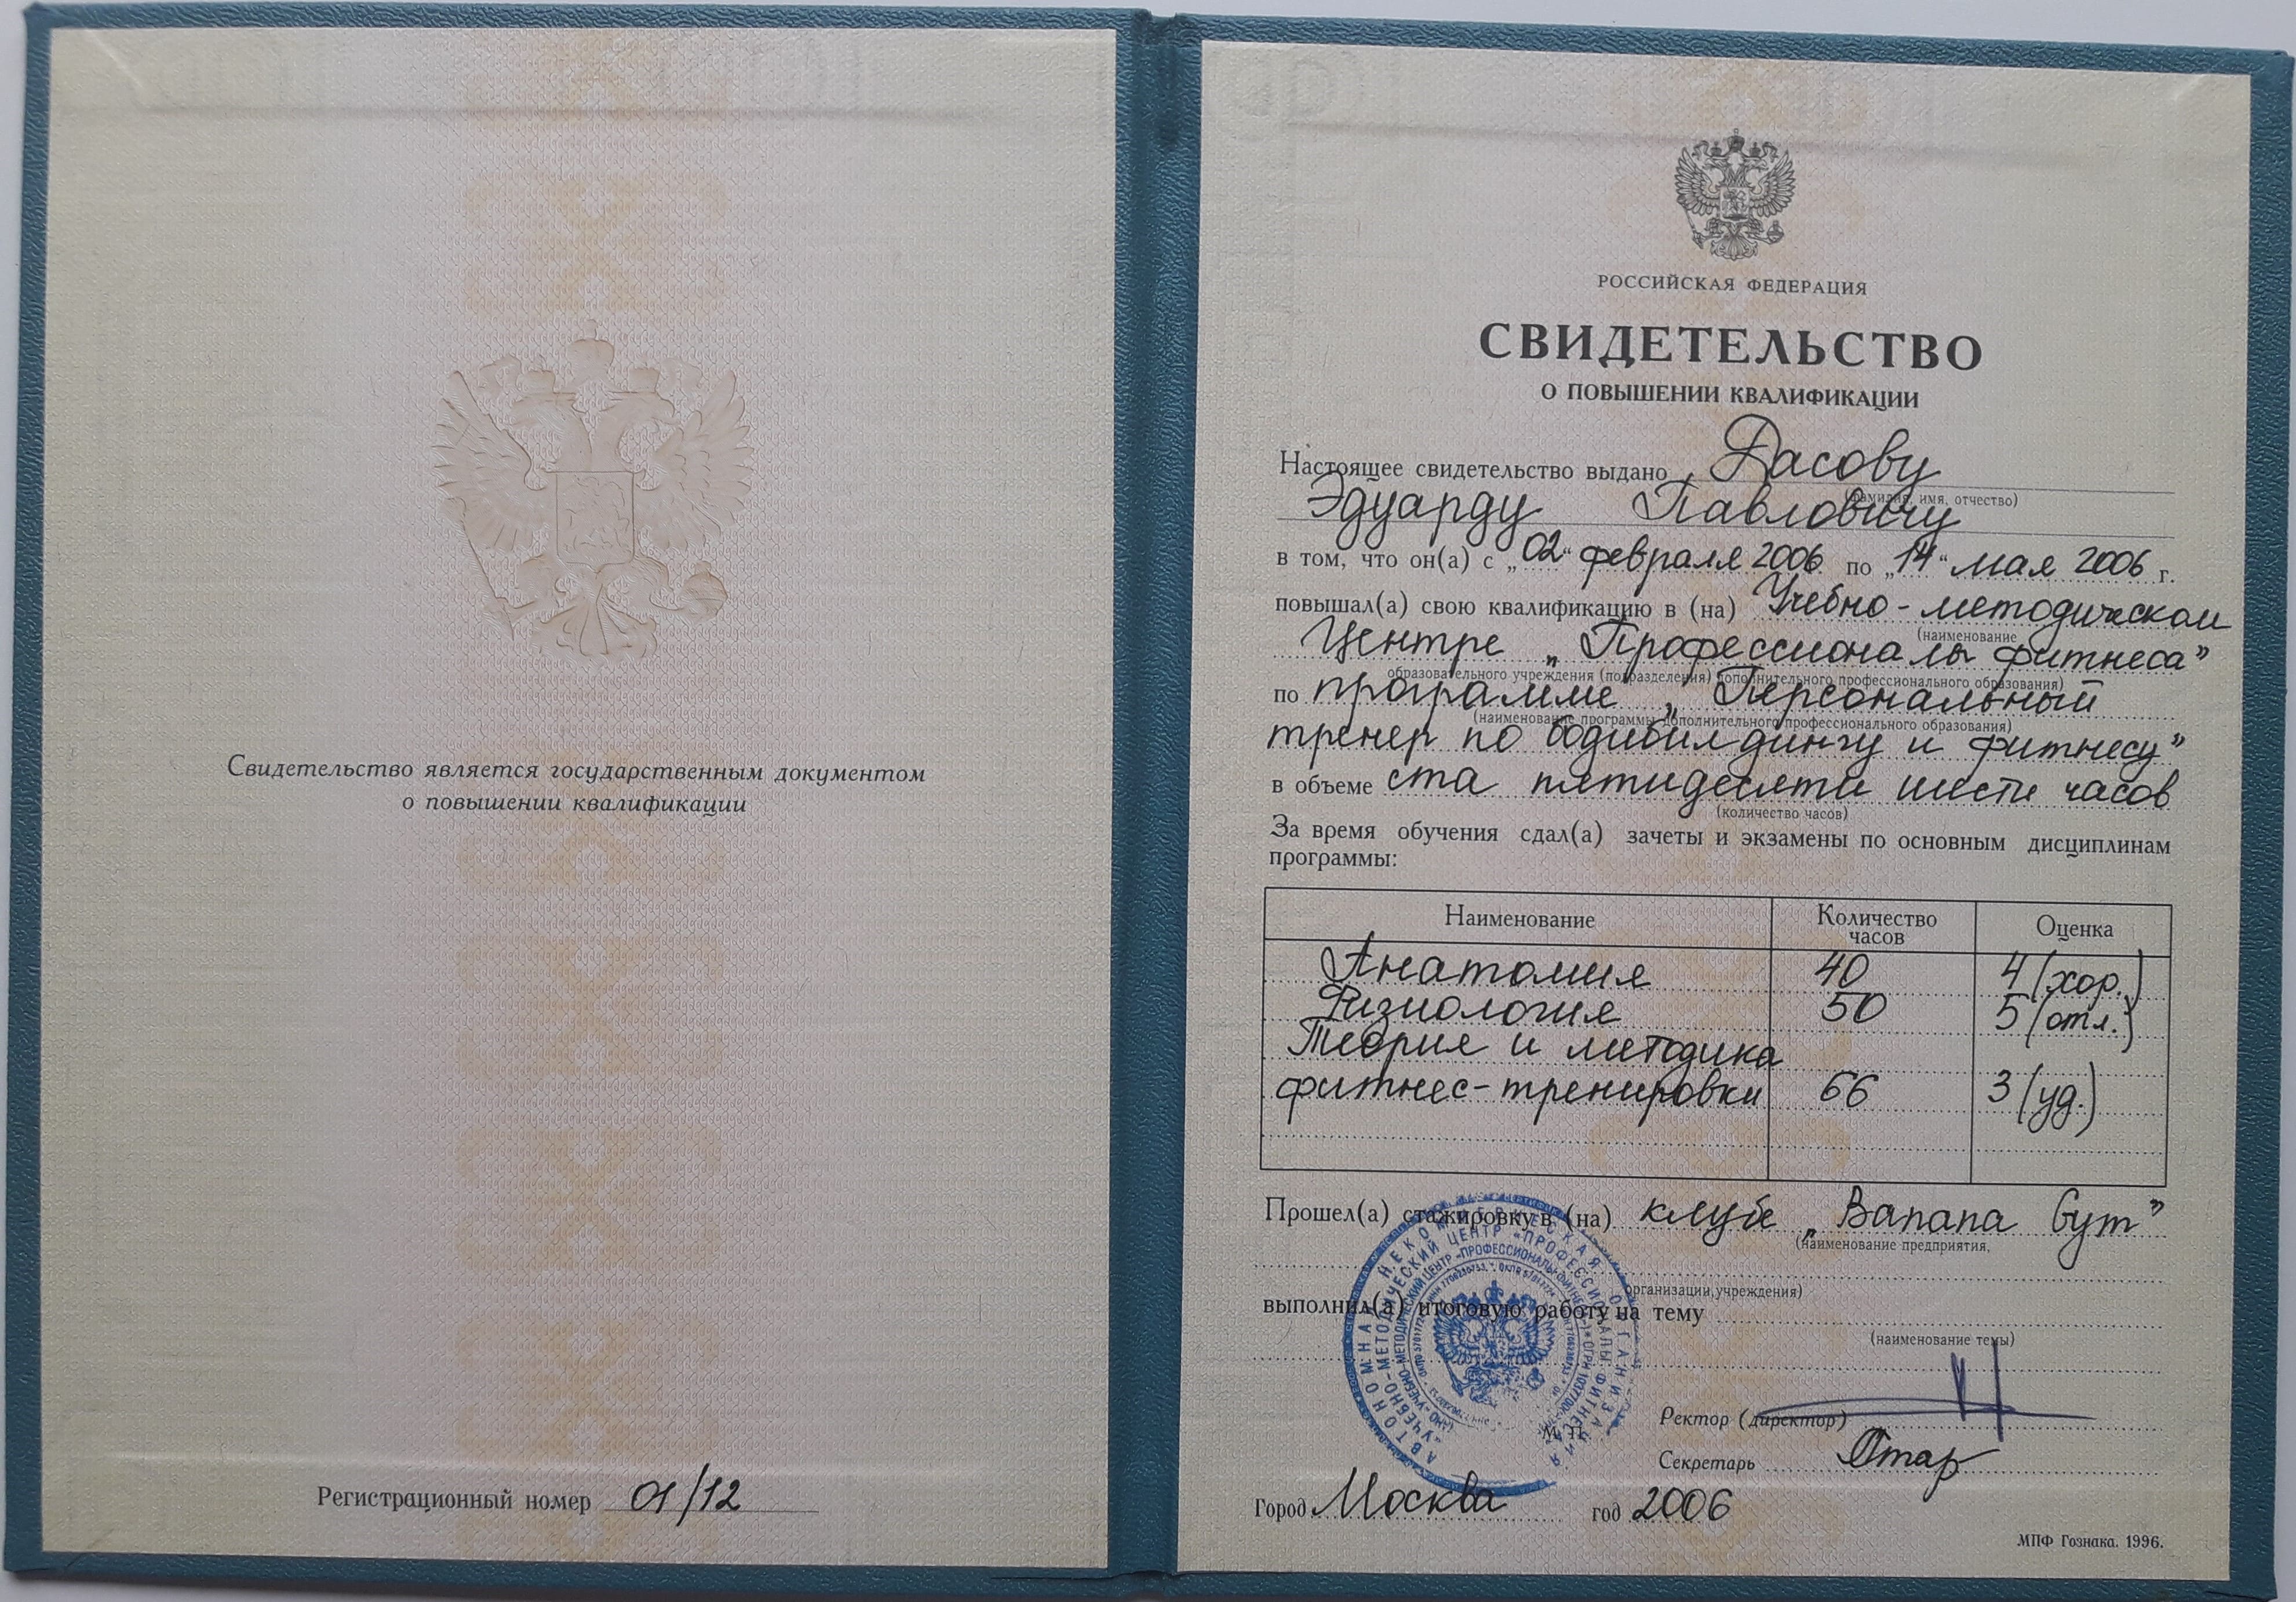 Свидетельство является государственным документом
о повышении квалификации
Регистрационный номер 01/12
РОССИЙСКАЯ ФЕДЕРАЦИЯ
СВИДЕТЕЛЬСТВО
О ПОВЫШЕНИИ КВАЛИФИКАЦИИ
Настоящее свидетельство выдано Дасову
(фамилия, имя, отчество)
Эдуарду Павловичу
в том, что он(а) с „02“ февраля 2006 по „14“ мая 2006 г.
повышал(а) свою квалификацию в (на) Учебно-методическом
(наименование
Центре „Профессионалы фитнеса”
образовательного учреждения (подразделения) дополнительного профессионального образования)
по программе „Персональный
(наименование программы дополнительного профессионального образования)
тренер по бодибилдингу и фитнесу”
в объеме ста пятидесяти шести часов
(количество часов)
За время обучения сдал(а) зачеты и экзамены по основным дисциплинам
программы:
Наименование Количество часов Оценка
Анатомия 40 4 (хор.)
Физиология 50 5 (отл.)
Теория и методика
фитнес-тренировки 66 3 (уд.)
Прошел(а) стажировку в (на) клубе „Banana Gym”
(наименование предприятия,
организации, учреждения)
выполнил(а) итоговую работу на тему
(наименование темы)
АВТОНОМНАЯ НЕКОММЕРЧЕСКАЯ ОРГАНИЗАЦИЯ
УЧЕБНО-МЕТОДИЧЕСКИЙ ЦЕНТР «ПРОФЕССИОНАЛЫ ФИТНЕСА»
М. П.
Ректор (директор)
Секретарь
Город Москва год 2006
МПФ Гознака. 1996.